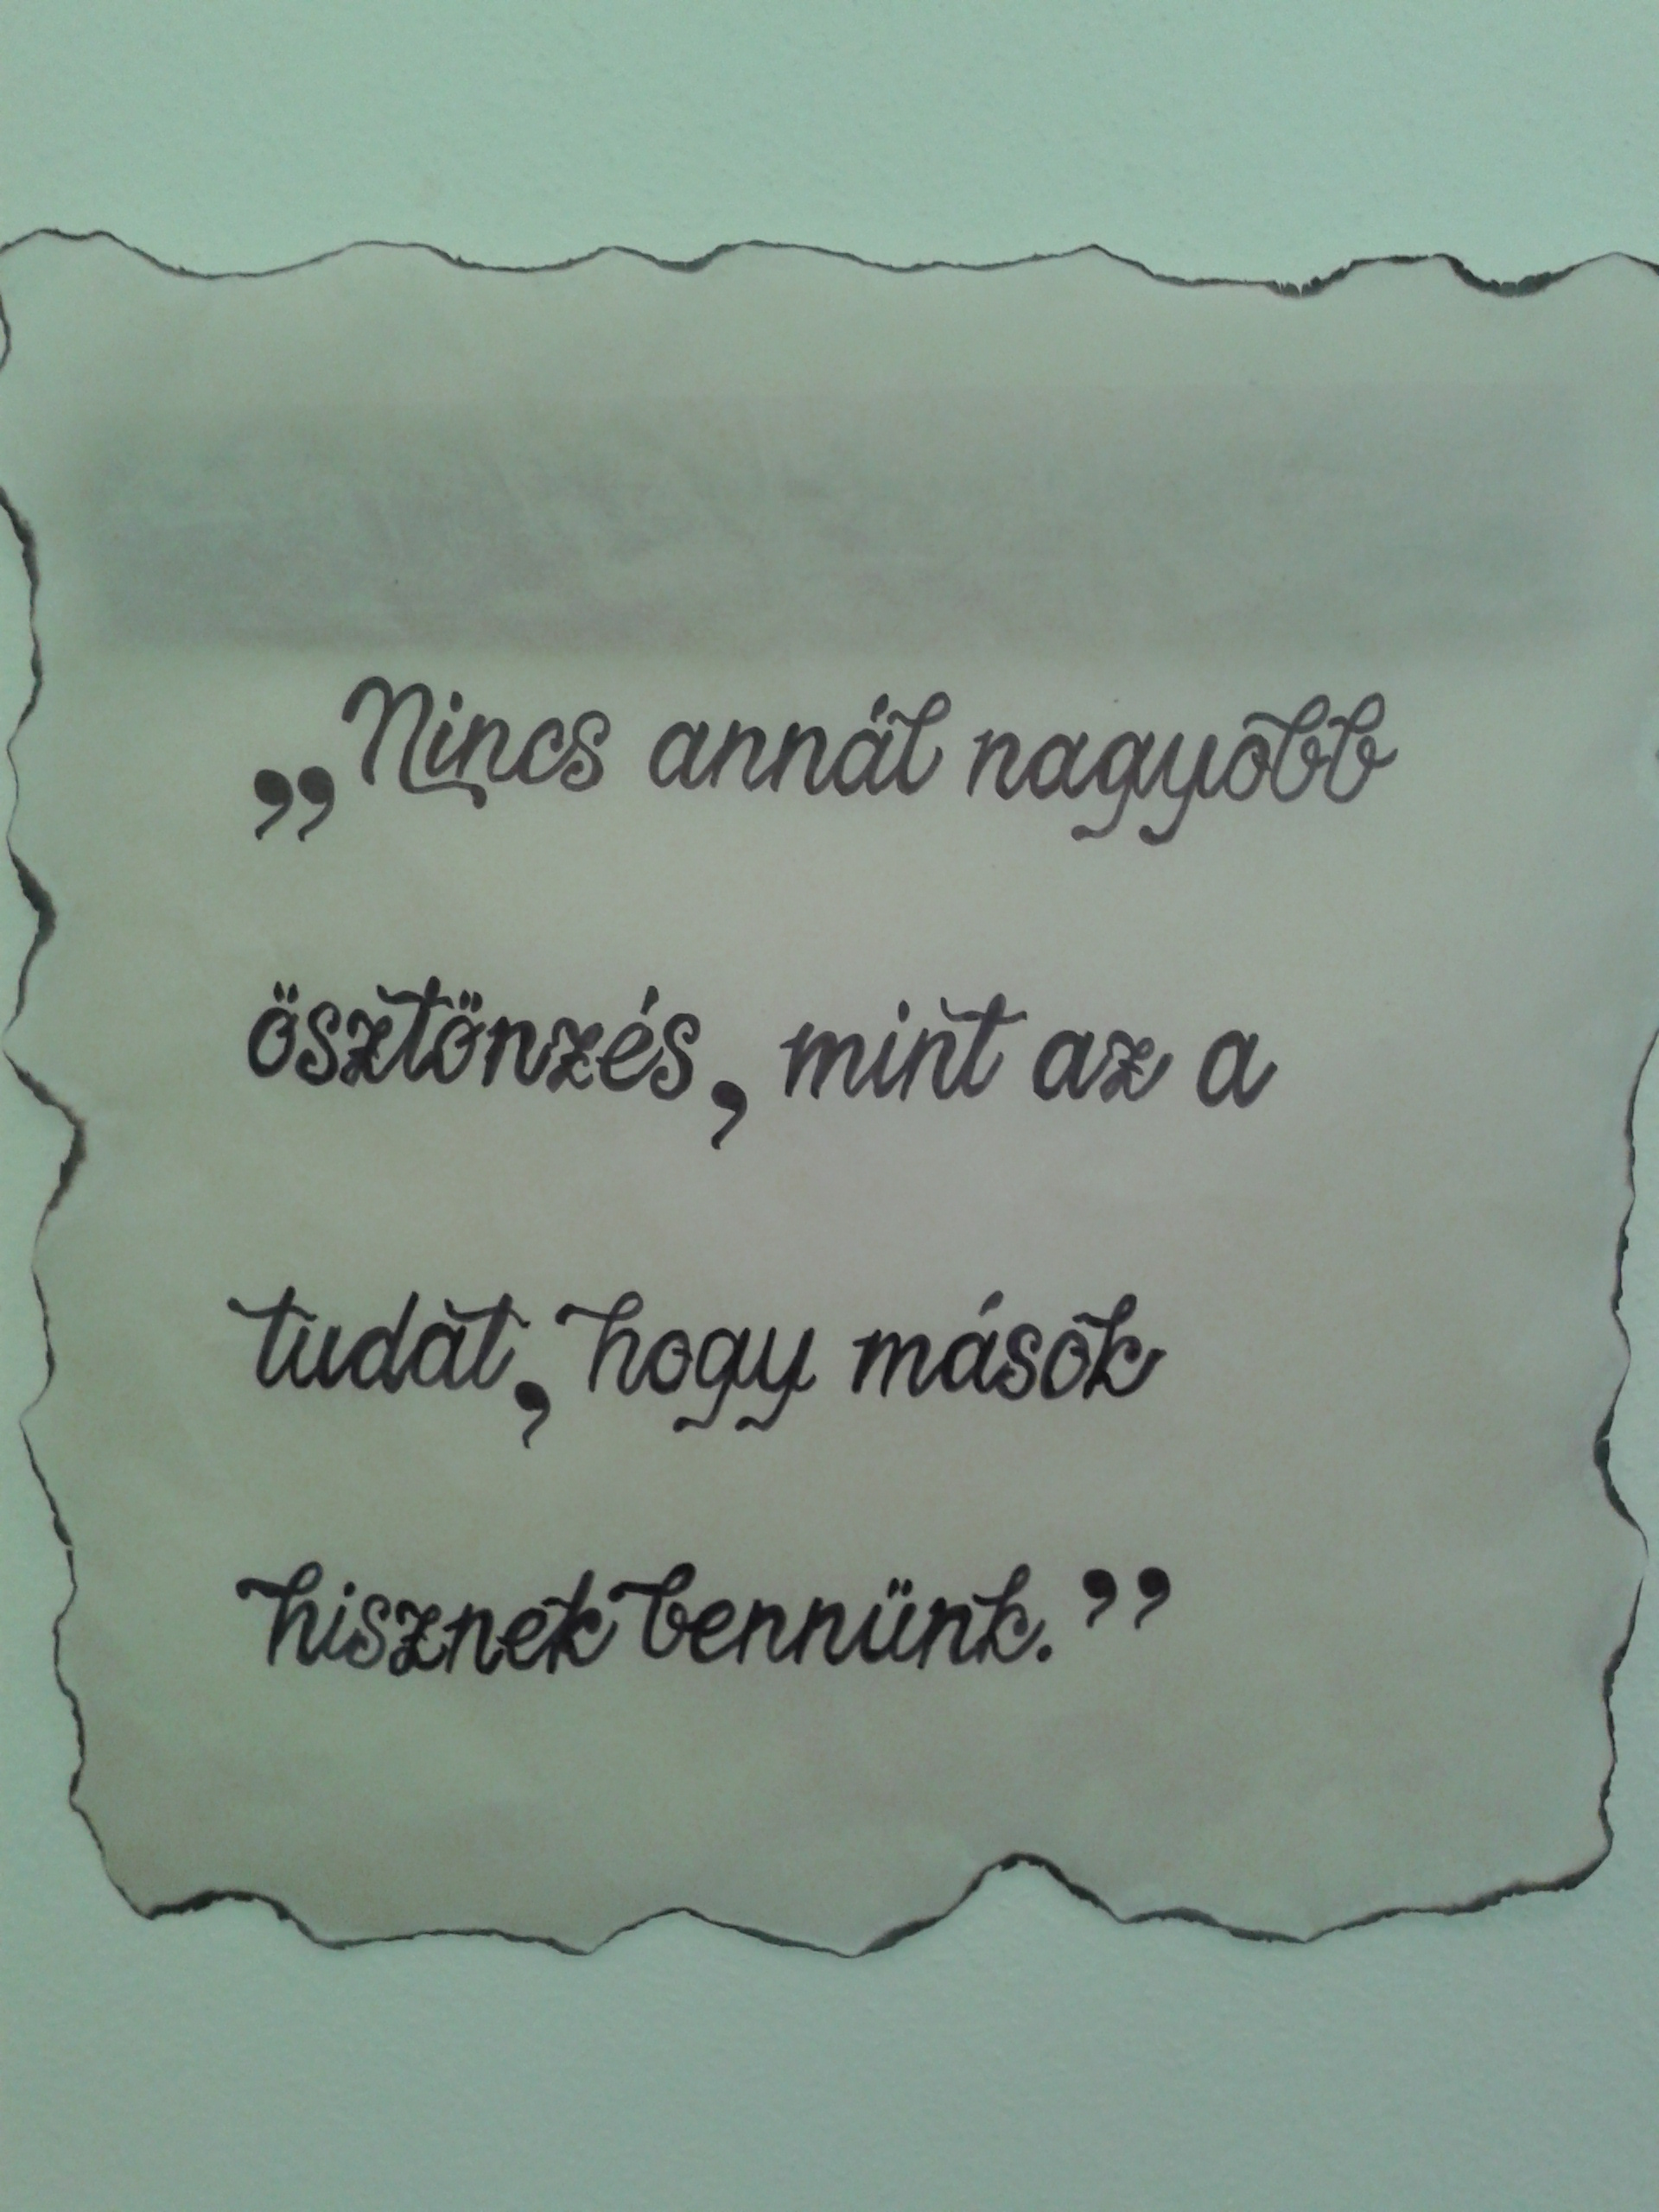 „Nincs annál nagyobb
ösztönzés, mint az a
tudat, hogy mások
hisznek bennünk.”